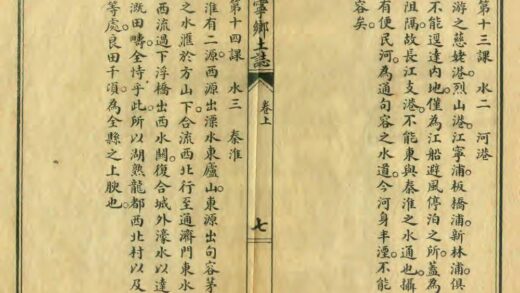 第十三課　水二　河港
游之慈姥港。烈山港。江寧浦。板橋浦。新林浦。俱
不能逕達內地。僅為江船避風停泊之所。蓋為
阻隔。故長江支港。不能東與秦淮之水通也。攝
有便民河。為通句容之水道。今河身半湮。不能
容矣。
寧鄉土誌　卷上　七
第十四課　水三　秦淮
淮有二源。西源出溧水東廬山。東源出句容茅
之水滙於方山下。合流西北行至通濟門東水
西流過下浮橋。出西水關。復合城外濠水以達
溉田疇。全恃乎此。所以湖熟龍都西北村以及
等處。良田千頃。為全縣之上腴也。